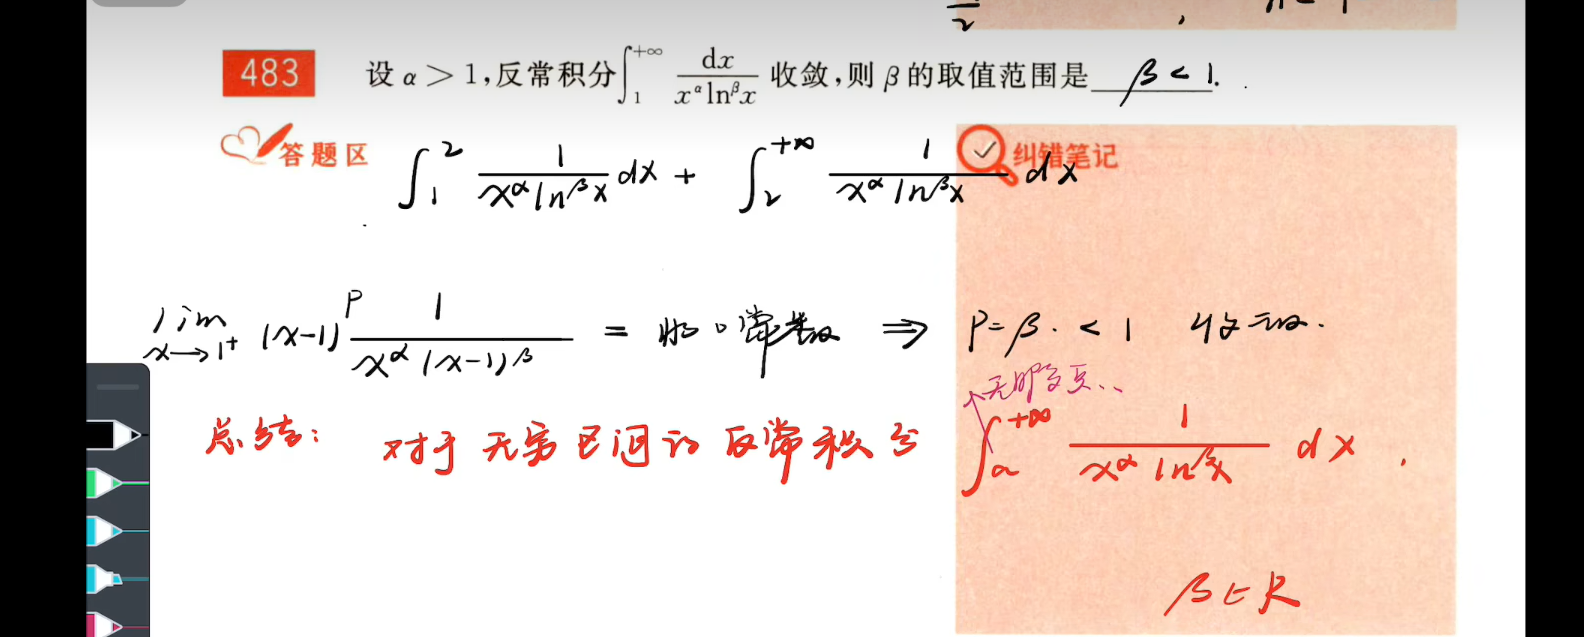 483 设 α > 1,反常积分∫₁^{+∞} dx/(x^α ln^β x) 收敛,则 β 的取值范围是 β < 1.
答题区
纠错笔记
∫₁² 1/(x^α ln^β x) dx + ∫₂^{+∞} 1/(x^α ln^β x) dx
lim_{x→1⁺} (x-1)^P 1/(x^α (x-1)^β) = 常数 ⇒ P=β. < 1 收敛.
总结: 对于无穷区间的反常积分 ∫ₐ^{+∞} 1/(x^α ln^β x) dx.
β∈R